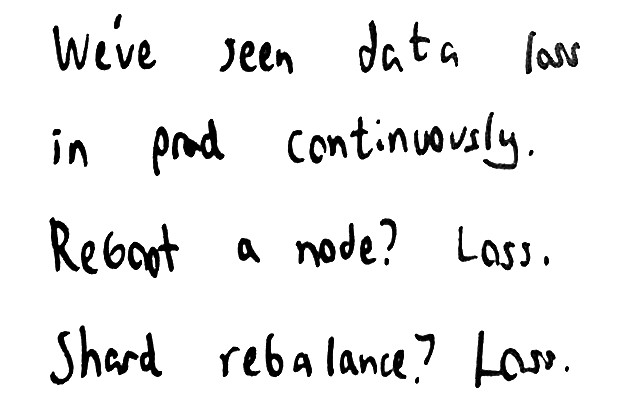 We've seen data loss
in prod continuously.
Reboot a node? Loss.
Shard rebalance? Loss.